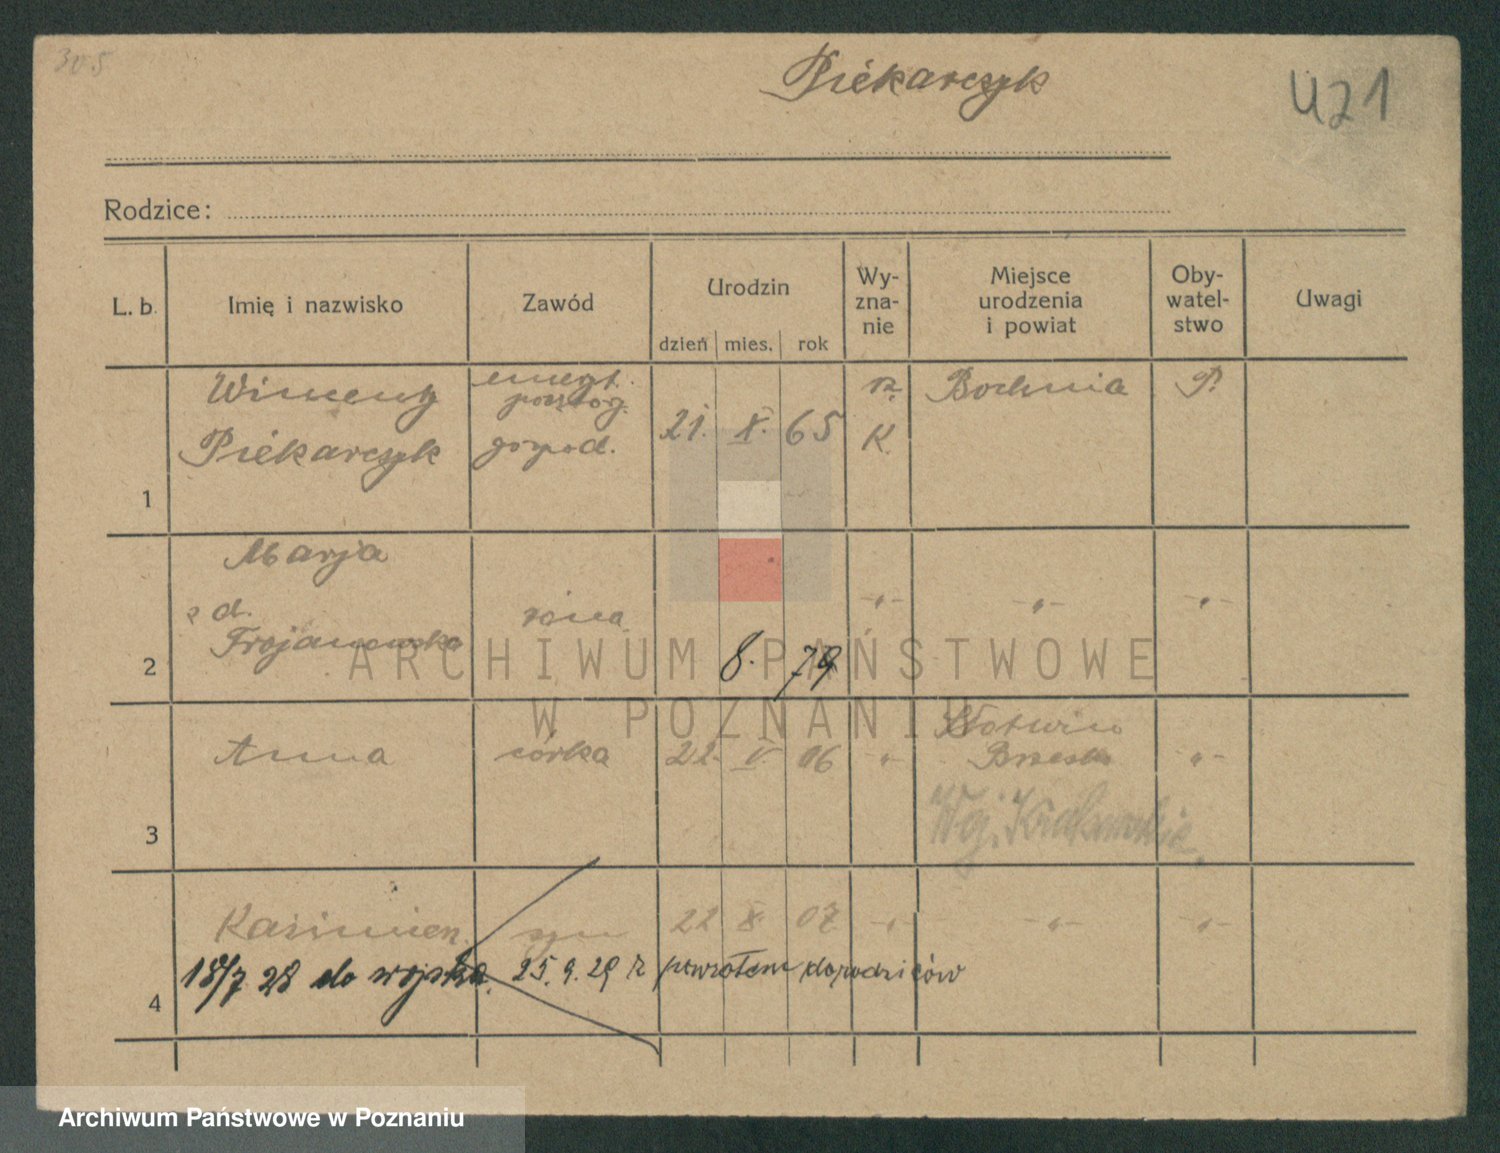 305
Piekarczyk
421
Rodzice:
L. b. Imię i nazwisko Zawód Urodzin Wy-zna-nie Miejsce urodzenia i powiat Oby-watel-stwo Uwagi
dzień mies. rok
Wincenty emeryt. rz. Bochnia P.
Piekarczyk gospod. 21. X. 65 K.
1
Marja
z d. żona -"- -"- -"-
Trojanowska
2 8. 79
Anna córka 22. V. 06 -"- Słotwina Brzesko -"-
3 Woj. Krakowskie.
Kazimierz syn 22 X. 07 -"- -"- -"-
18/7 28 do wojska. 25.9.29 z powrotem do rodziców
4
ARCHIWUM PAŃSTWOWE
W POZNANIU
Archiwum Państwowe w Poznaniu